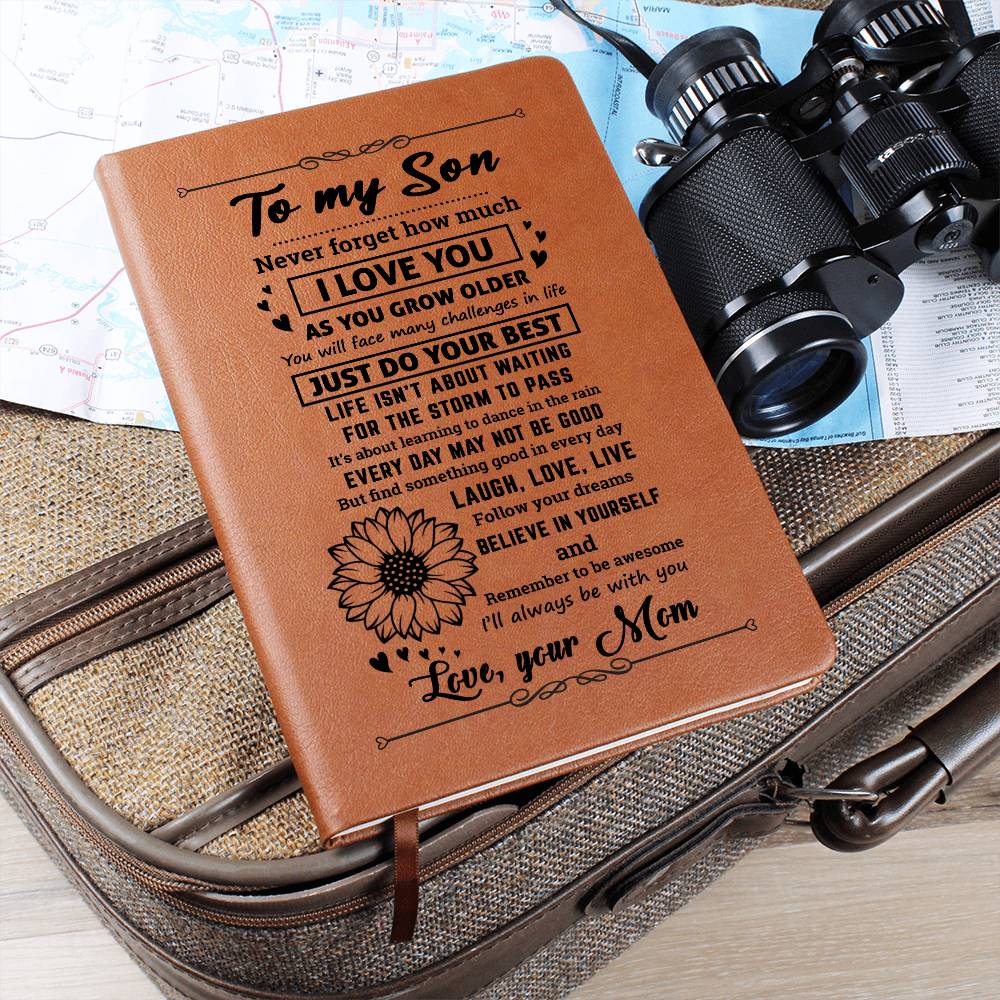 To my Son
Never forget how much
I LOVE YOU
AS YOU GROW OLDER
You will face many challenges in life
JUST DO YOUR BEST
LIFE ISN'T ABOUT WAITING
FOR THE STORM TO PASS
It's about learning to dance in the rain
EVERY DAY MAY NOT BE GOOD
But find something good in every day
LAUGH, LOVE, LIVE
Follow your dreams
BELIEVE IN YOURSELF
and
Remember to be awesome
I'll always be with you
Love, your Mom
tasco
MARIA
INTRACOASTAL